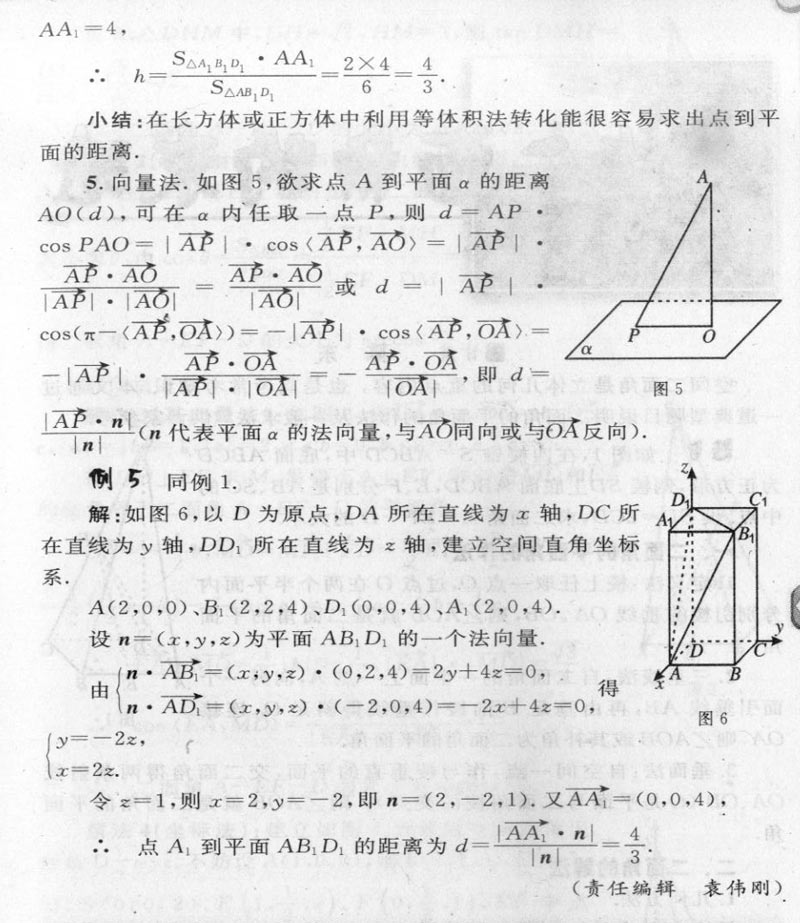 AA₁=4,
∴ h=S△A₁B₁D₁·AA₁/S△AB₁D₁=2×4/6=4/3.
小结:在长方体或正方体中利用等体积法转化能很容易求出点到平
面的距离.
5.向量法.如图5,欲求点A到平面α的距离
AO(d),可在α内任取一点P,则 d=AP·
cos PAO=|AP→|·cos⟨AP→,AO→⟩=|AP→|·
AP→·AO→/|AP→|·|AO→|=AP→·AO→/|AO→| 或 d=|AP→|·
cos(π-⟨AP→,OA→⟩)=-|AP→|·cos⟨AP→,OA→⟩=
-|AP→|·AP→·OA→/|AP→|·|OA→|=-AP→·OA→/|OA→|,即 d=
|AP→·n|/|n|(n代表平面α的法向量,与AO→同向或与OA→反向).
A
P
O
α
图5
例5 同例4.
解:如图6,以D为原点,DA所在直线为x轴,DC所
在直线为y轴,DD₁所在直线为z轴,建立空间直角坐标
系.
A(2,0,0)、B₁(2,2,4)、D₁(0,0,4)、A₁(2,0,4).
设n=(x,y,z)为平面AB₁D₁的一个法向量.
由{n·AB₁→=(x,y,z)·(0,2,4)=2y+4z=0,
n·AD₁→=(x,y,z)·(-2,0,4)=-2x+4z=0, 得
{y=-2z,
x=2z.
z
D₁
C₁
A₁
B₁
y
D
C
A
B
x
图6
令z=1,则x=2,y=-2,即n=(2,-2,1).又AA₁→=(0,0,4),
∴ 点A₁到平面AB₁D₁的距离为d=|AA₁→·n|/|n|=4/3.
(责任编辑 袁伟刚)